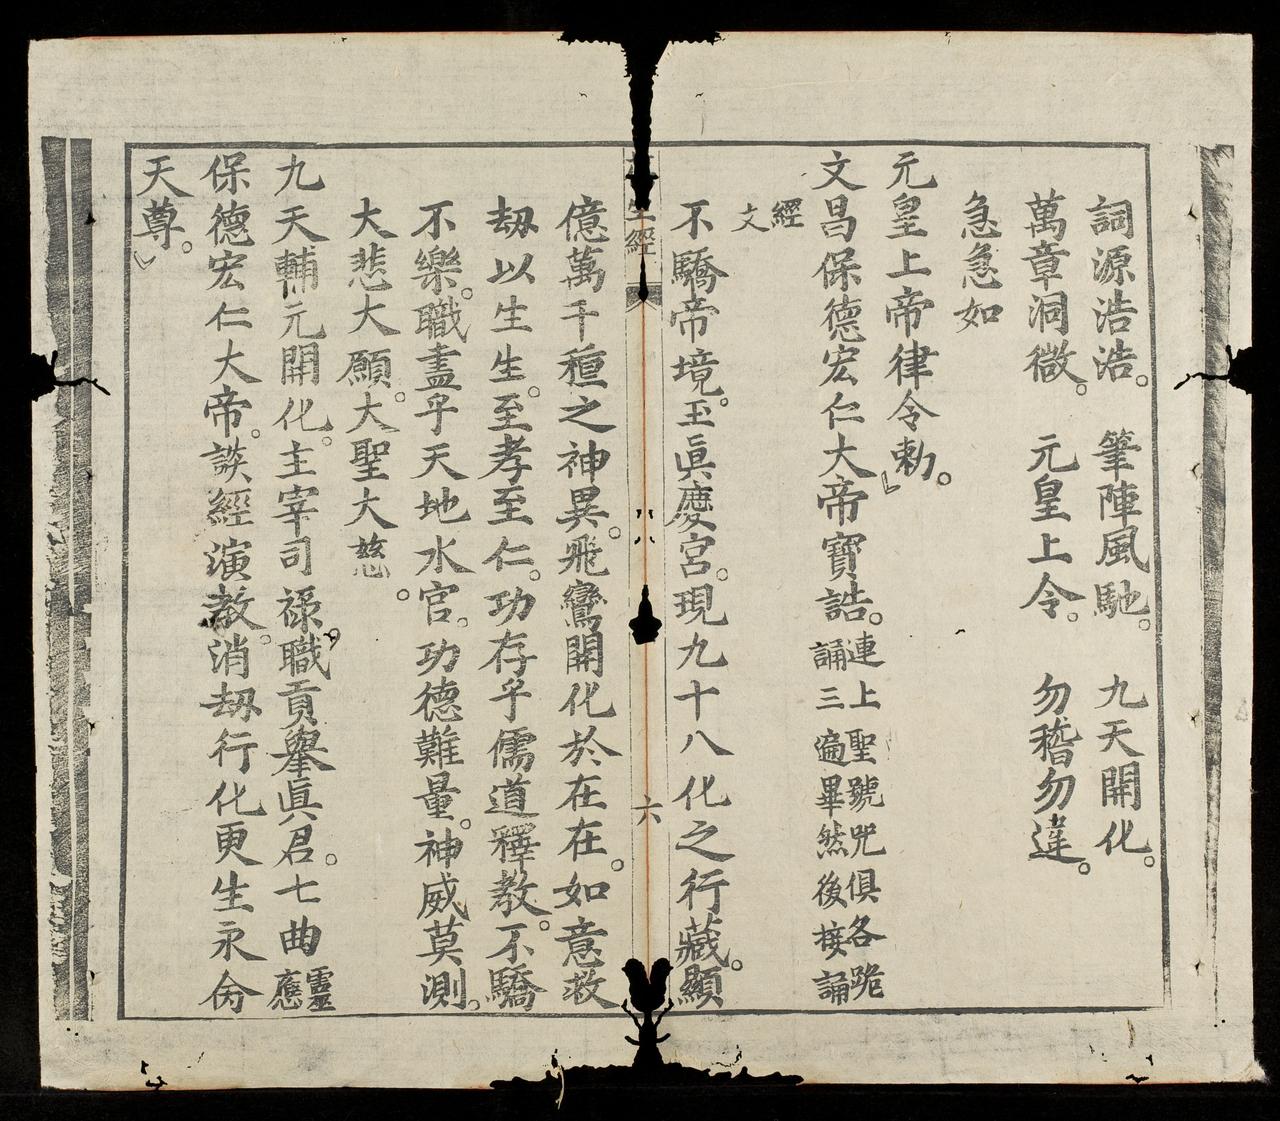 詞源浩浩。筆陣風馳。九天開化。
萬章洞微。元皇上令。勿稽勿違。
急急如
元皇上帝律令勅。
文昌保德宏仁大帝寶誥。連上聖號咒俱各跪
誦三遍畢然後接誦
經
文
不驕帝境。玉眞慶宮。現九十八化之行藏。顯
生經
六
億萬千種之神異。飛鸞開化於在在。如意救
劫以生生。至孝至仁。功存乎儒道釋教。不驕
不樂。職盡乎天地水官。功德難量。神威莫測。
大悲大願。大聖大慈。
九天輔元開化。主宰司祿。職貢舉眞君。七曲靈應
保德宏仁大帝。談經演教。消劫行化更生永命
天尊。